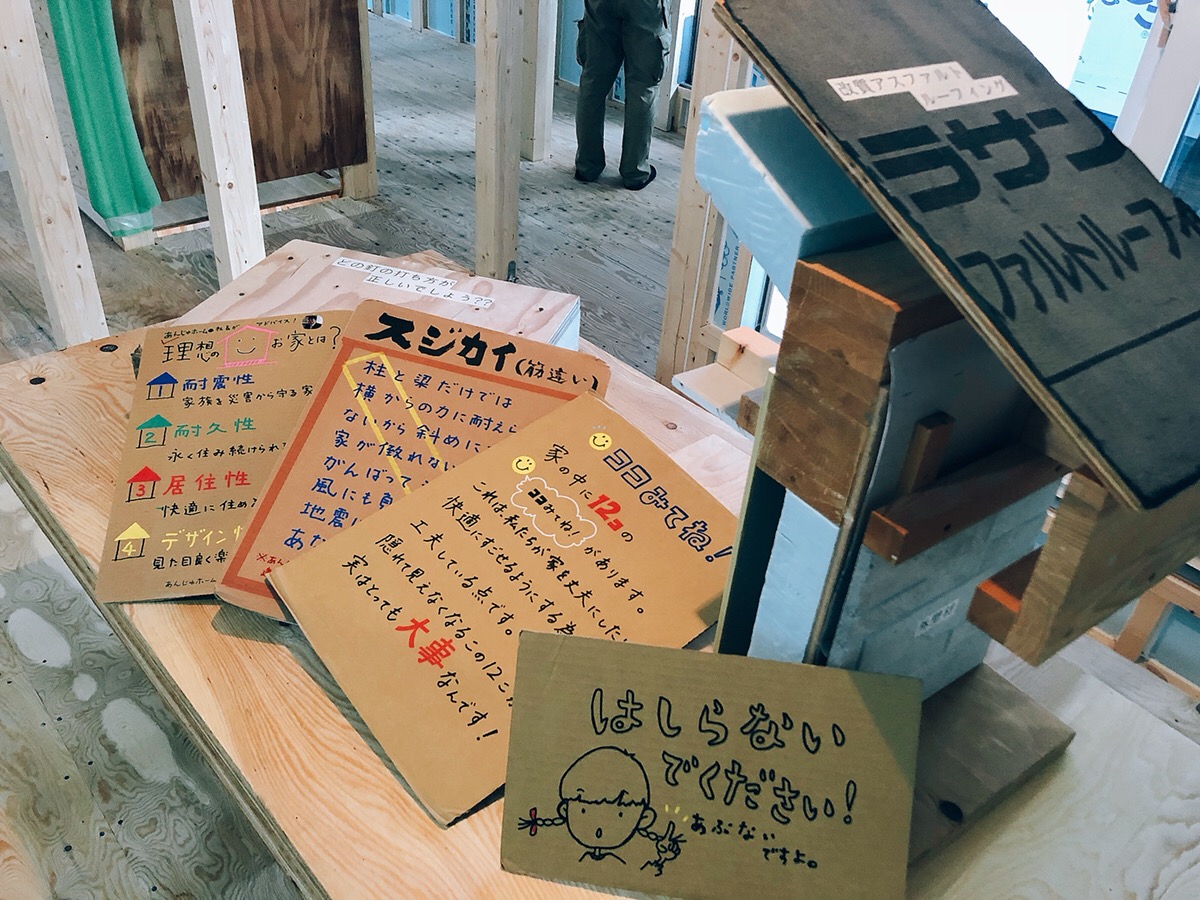 改質アスファルト
ルーフィング
ラサン
ファルトルーフィ
どの釘の打ち方が
正しいでしょう??
あんじゅホーム
アドバイス!
理想の お家とは?
1 耐震性
家族を災害から守る家
2 耐久性
永く住み続けられ?
3 居住性
快適に住め?
4 デザイン
見た目良く楽
あんじゅホーム
スジカイ(筋違い)
柱と梁だけでは
横からの力に耐えら
ないから斜めに
家が倒れない
がんばって
風にも負
地震に
あな
ココみてね!
家の中に12コの
ココみてね! があります。
これは私たちが家を丈夫にしたい
快適にすごせるようにする為
工夫している点です。
隠れて見えなくなるこの12コが
実はとっても大事なんです!
はしらない
でください!
あぶない
ですよ。
WORLDWIDE PARTNER